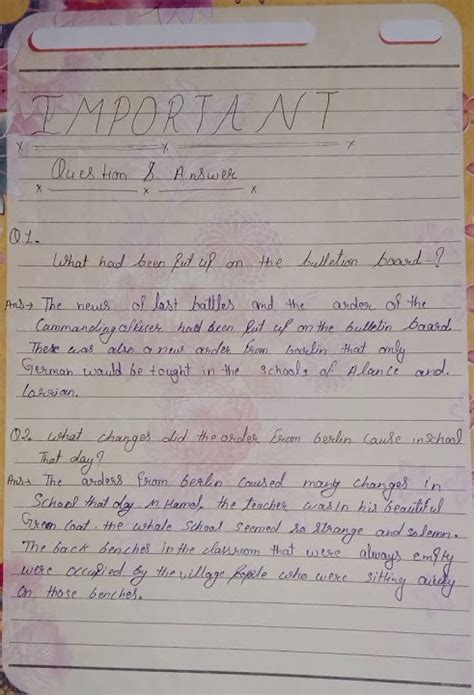 IMPORTANT
Question & Answer
Q1.
What had been put up on the bulletion board-?
Ans→ The news of last battles and the arder of the
Cammanding officer had been put up on the bulletin baard.
There was also a new arder from barlin that only
German would be tought in the schools of Alance and
Lorrian.
Q2. What changes did the order from berlin cause in school
That day?
Ans→ The arders from berlin caused many changes in
School that day. M Hamel, the teacher was in his beautiful
Green Coat. the whale School seemed so strange and solemn.
The back benches in the classroom that were always empty
were occupied by the village people who were sitting
On those benches.